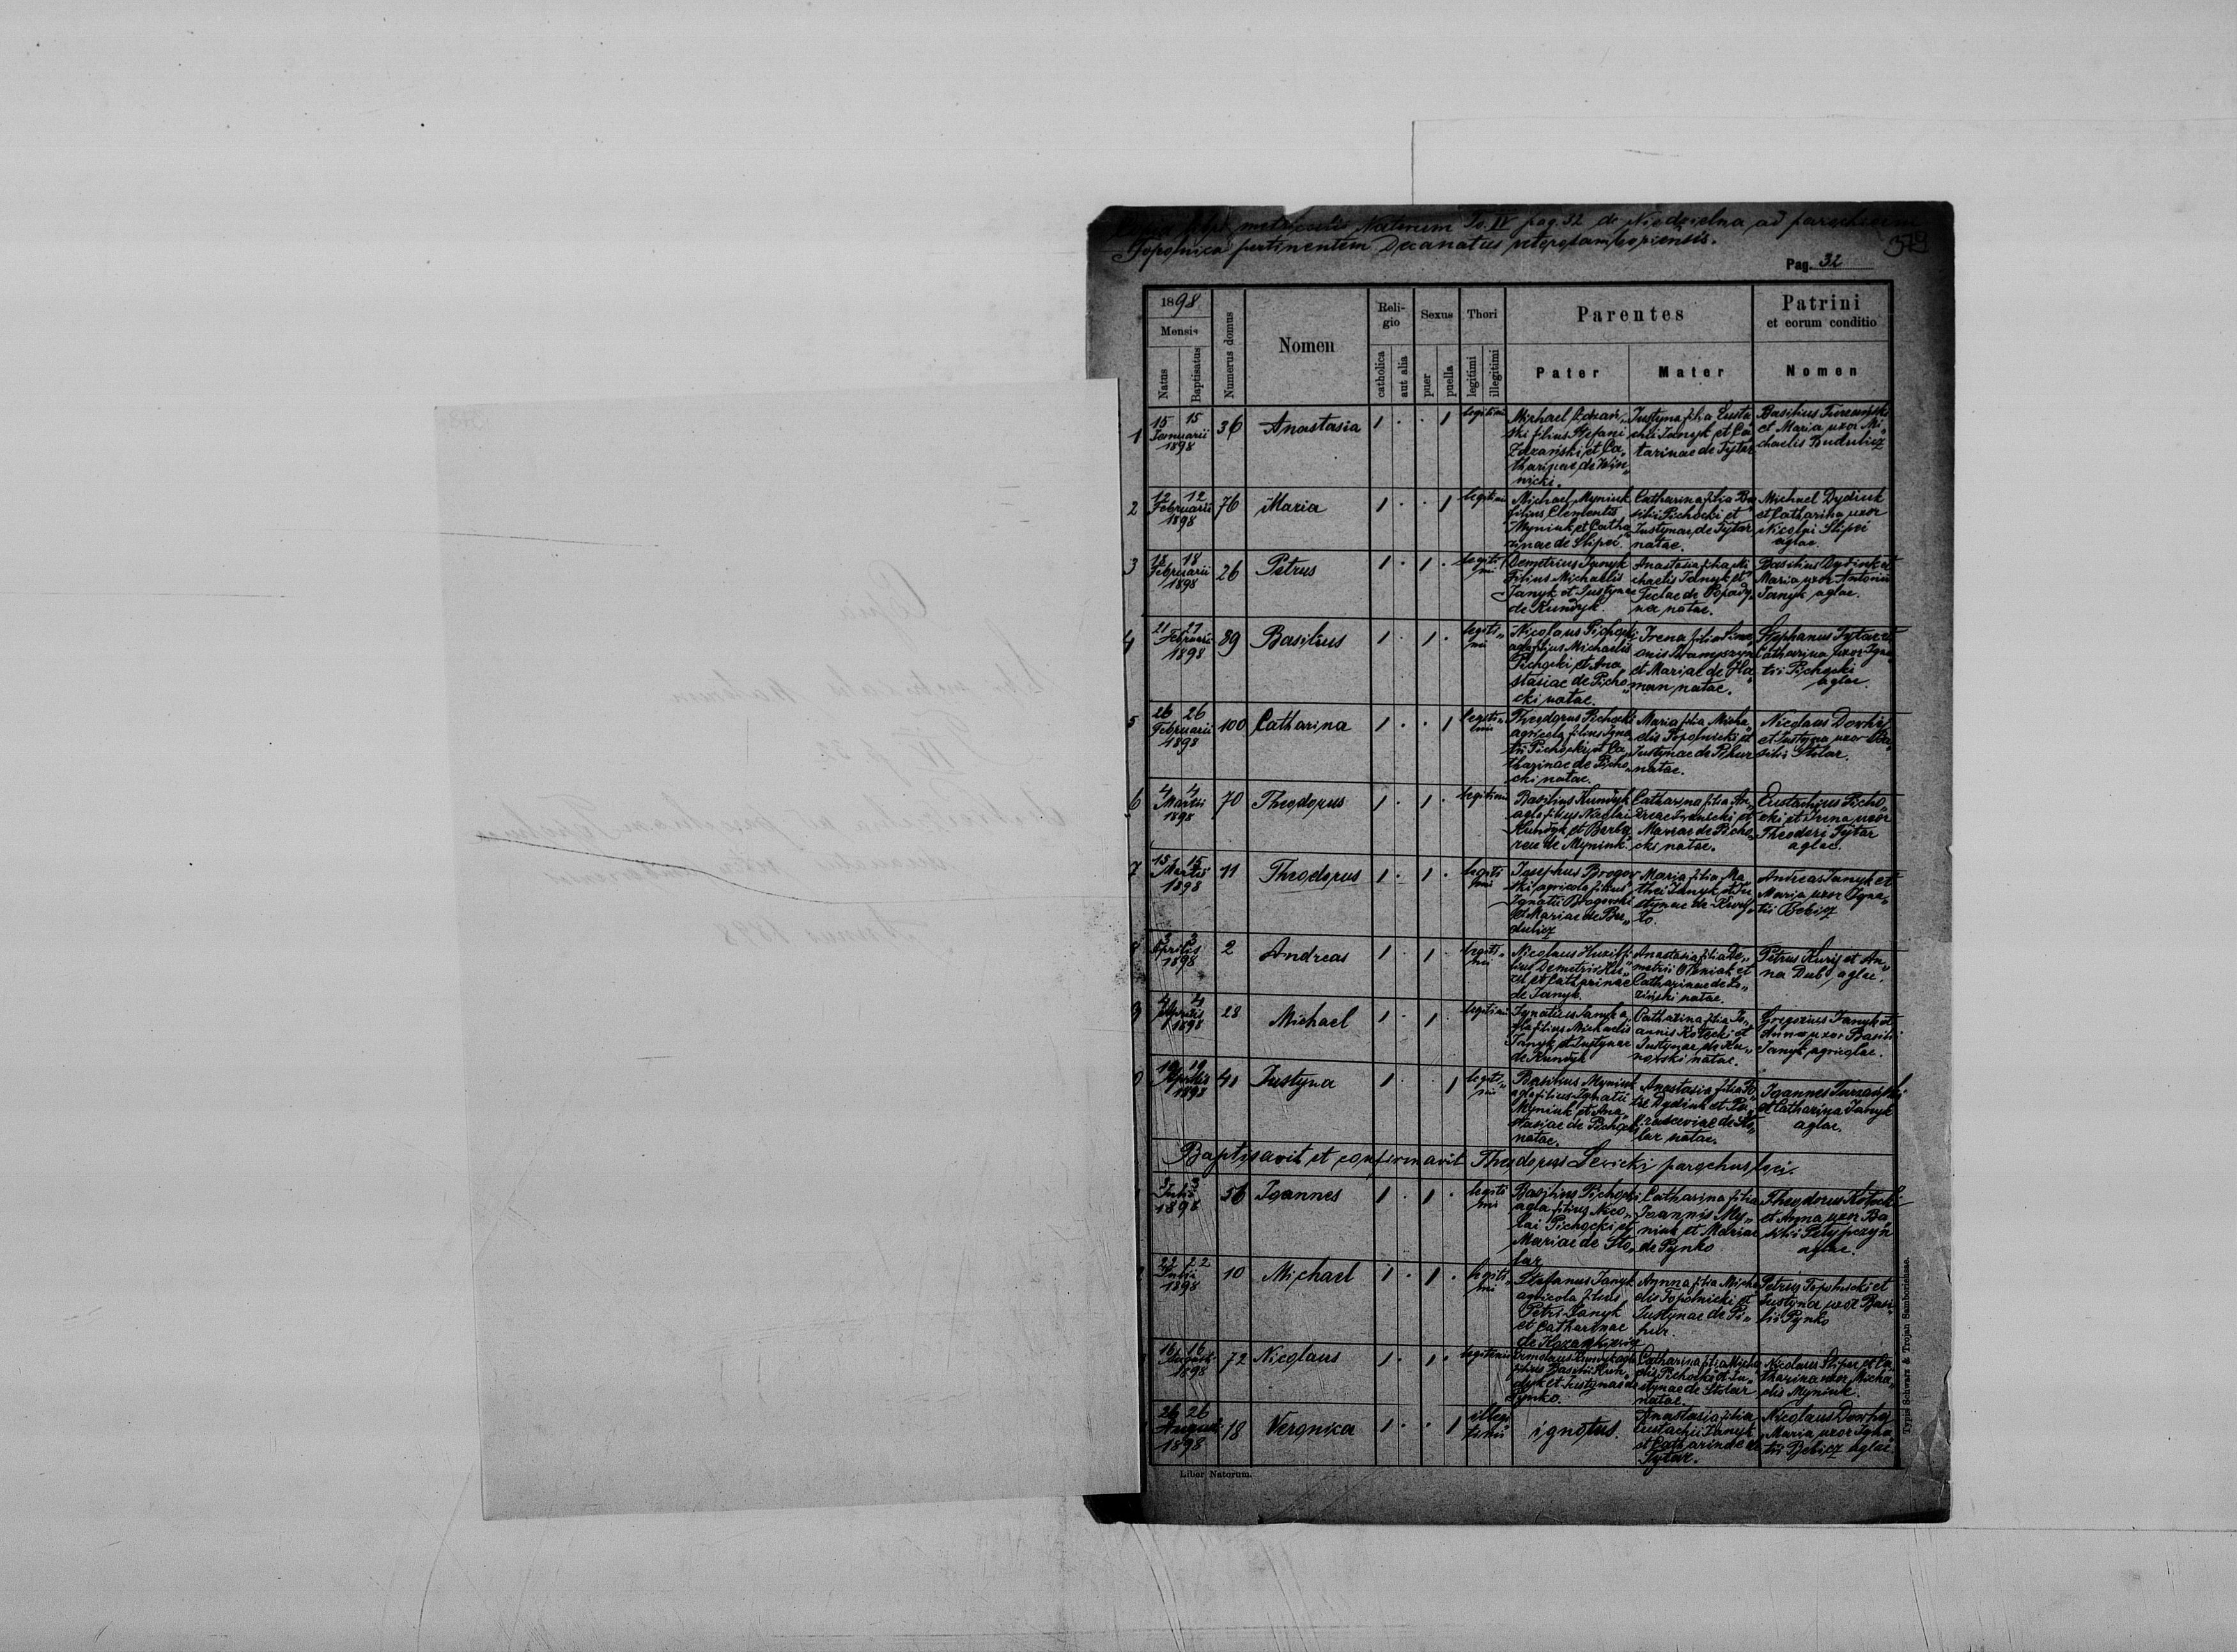 Copia libri metricalis Natorum To. IV pag. 32 de Niedzielna ad parochiam
Topolnica pertinentem Decanatus veterosamboriensis.
379
Pag. 32
1898
Mensis
Natus
Baptisatus
Numerus domus
Nomen
Religio
catholica
aut alia
Sexus
puer
puella
Thori
legitimi
illegitimi
Parentes
Pater
Mater
Patrini
et eorum conditio
Nomen
1 15 15 Januarii 1898 36 Anastasia 1 . . 1 legitimi
Michael Zdzań„
ski filius Stefani
Zdzański et Ca„
tharinae de Win„
nicki.
Justyna filia Eusta
chii Janyk et Ca„
tarinae de Tytar
Basilius Turzański
et Maria uxor Mi„
chaelis Budulicz
2 12 12 Februarii 1898 76 Maria 1 . . 1 legitimi
Michael Myniuk
filius Clementis
Myniuk et Catha
rinae de Slipeć.
Catharina filia Ba
silii Pichocki et
Justynae de Tytar
natae.
Michael Dydiuk
et Catharina uxor
Nicolai Slipeć
aglae.
3 18 18 Februarii 1898 26 Petrus 1 . 1 . legitimi
Demetrius Janyk
filius Michaelis
Janyk et Justynae
de Kundyk.
Anastasia filia Mi
chaelis Janyk et
Teclae de Popady„
nec natae.
Basilius Dydiuk et
Maria uxor Antonii
Janyk aglae.
4 21 27 Februarii 1898 89 Basilius 1 . 1 . legiti„
mi
Nicolaus Pichocki
agla filius Michaelis
Pichocki et Ana
stasiae de Picho„
cki natae.
Irena filia Sime„
onis
et Mariae de Ha„
man natae.
Stephanus Tytar et
Catharina uxor Igna„
tii Pichocki
aglae.
5 26 26 Februarii 1898 100 Catharina 1 . . 1 legiti„
mi
Theodorus Pichocki
agricola filius Igna
tii Pichocki et Ca
tharinae de Picho„
cki natae.
Maria filia Micha„
elis Topolnicki et
Justynae de Pihur
natae.
Nicolaus Dowhyj
et Justyna uxor Ba„
silii Stolar.
6 4 4 Martii 1898 70 Theodorus 1 . 1 . legitimi
Basilius Kundyk
agla filius Nicolai
Kundyk et Barba„
rae de Myniuk.
Catharina filia An„
dreae et
Mariae de Picho„
cki natae.
Eustachius Picho„
cki et Irena uxor
Theodori Tytar
aglae.
7 15 15 Martii 1898 11 Theodorus 1 . 1 . legiti
mi
Josephus Brogow
ski agricola filius
Ignatii Brogowski
et Mariae de Bu„
dulicz
Maria filia Ma„
thei Janyk et Ju
stynae de
Andreas Janyk et
Maria uxor Igna„
tii Bebicz
8 3 3 Aprilis 1898 2 Andreas 1 . 1 . legiti„
mi
Nicolaus fi„
lius Demetrii
et Catharinae
de Janyk.
Anastasia filia De„
metrii et
Catharinae de Lo„
ziński natae.
Petrus Kurij et An„
na Dub, aglae.
9 4 4 Aprilis 1898 28 Michael 1 . 1 . legitimi
Ignatius Janyk a„
gla filius Michaelis
Janyk et Justynae
de Kundyk
Catharina filia Jo„
annis Kotecki et
Justynae de Ku„
nowski natae.
Gregorius Janyk et
Anna uxor Basilii
Janyk agricolae.
0 19 19 Aprilis 1898 41 Justyna 1 . . 1 legiti„
mi
Basilius Myniuk
agla filius Ignatii
Myniuk et Ana„
stasiae de Pichocki
natae.
Anastasia filia Pe„
tri Dydiuk et Pa„
rasceviae de Sto„
lar natae.
Joannes Turzański
et Catharina Janyk
aglae.
Baptisavit et confirmavit Theodorus Sewicki parochus loci.
3 3 Julii 1898 56 Joannes 1 . 1 . legiti
mi
Basilius Pichocki
agla filius Nico„
lai Pichocki et
Mariae de Sto„
lar
Catharina filia
Joannis My„
niuk et Mariae
de Pynko
Theodorus Kotecki
et Anna uxor Ba„
silii Petypczyn
aglae.
2 22 22 Julii 1898 10 Michael 1 . 1 . legiti„
mi
Stefanus Janyk
agricola filius
Petri Janyk
et Catharinae
de
Anna filia Micha
elis Topolnicki et
Justynae de Pi„
hur.
Petrus Topolnicki et
Justyna uxor Basi„
lii Pynko
16 16 Augusti 1898 72 Nicolaus 1 . 1 . legitimi
Ermolaus Kundyk agla
filius Basilii Kun„
dyk et Justynae de
Pynko.
Catharina filia Micha
elis Pichocki et Ju„
stynae de Stolar
natae.
Nicolaus Slipec et Ca„
tharina uxor Micha„
elis Myniuk.
26 26 Augusti 1898 18 Veronica 1 . . 1 illegi
timi
ignotus.
Anastasia filia
Eustachii Janyk
et Catharinae de
Tytar.
Nicolaus Dowhyj
Maria uxor Igna„
tii Bebicz aglae.
Liber Natorum.
Typis Schwarz & Trojan Samboriensae.